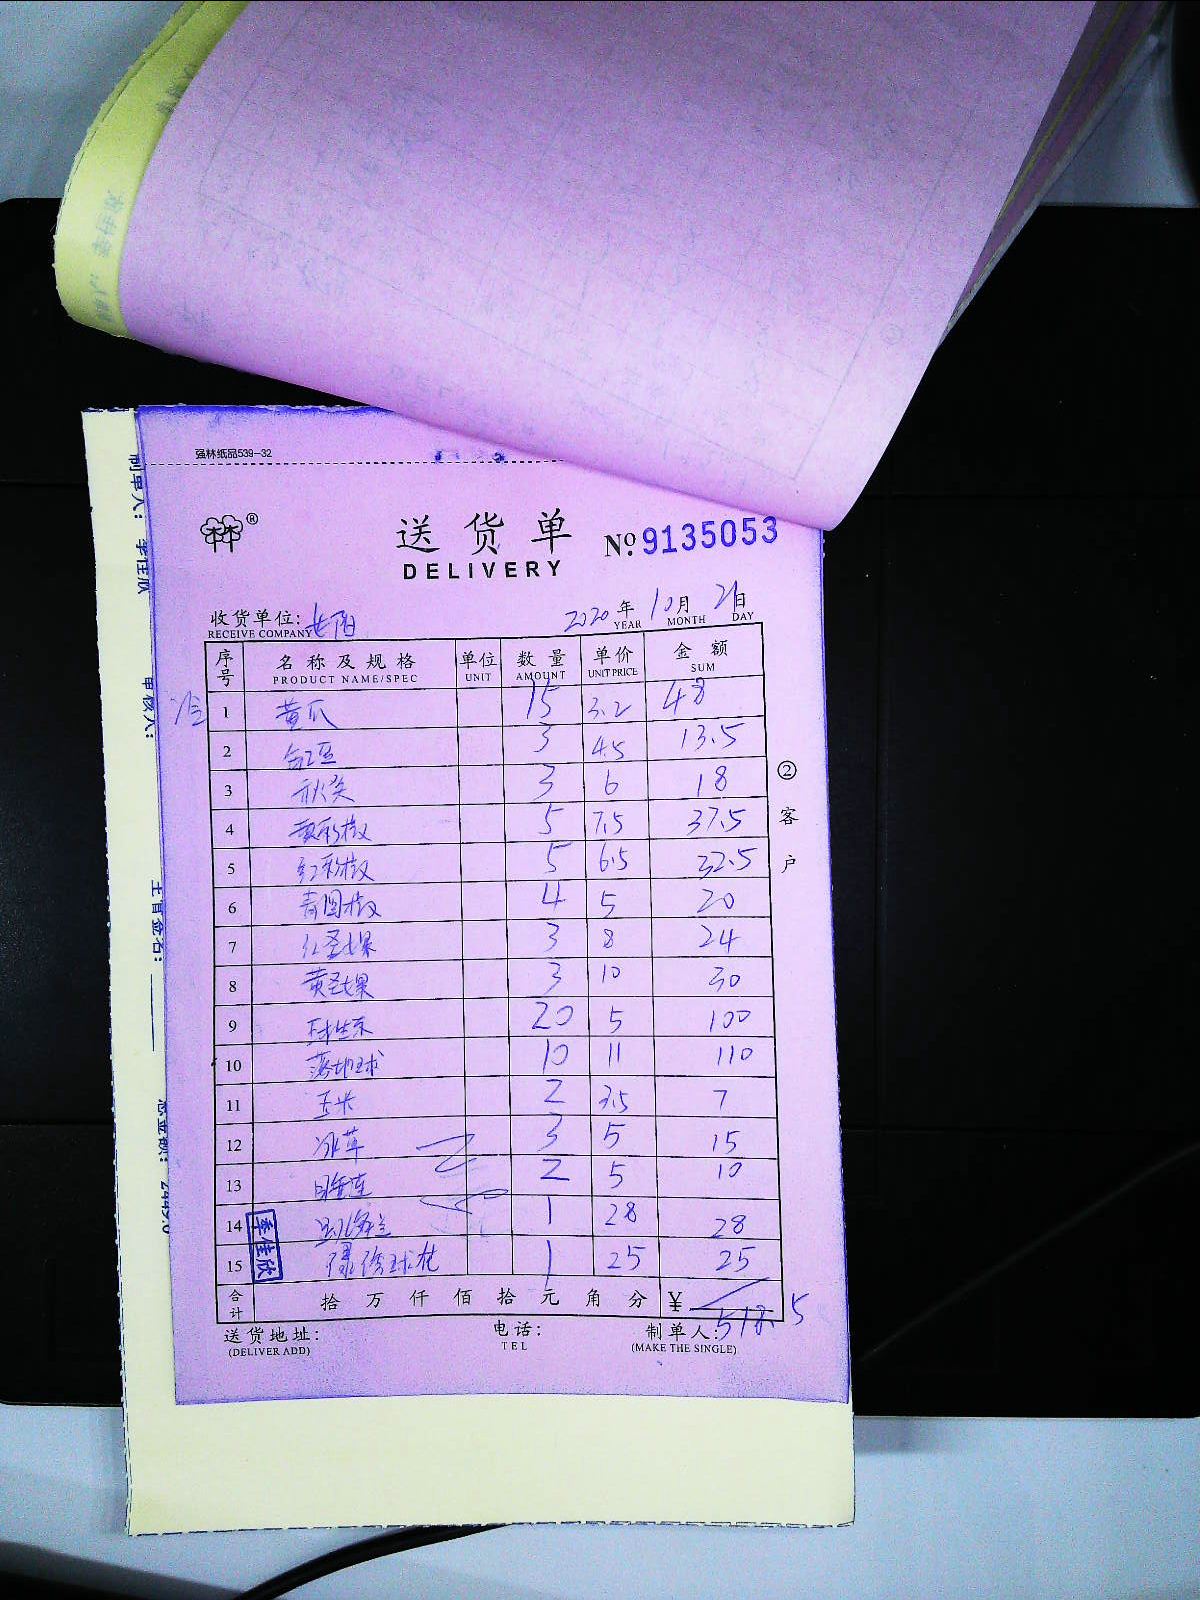 强林纸品539-32
送货单
DELIVERY
№ 9135053
收货单位:
RECEIVE COMPANY
2020年10月21日
YEAR MONTH DAY
序号 名称及规格 单位 数量 单价 金额
PRODUCT NAME/SPEC UNIT AMOUNT UNIT PRICE SUM
1 黄瓜 15 3.2 48
2 3 4.5 13.5
3 秋葵 3 6 18
4 黄彩椒 5 7.5 37.5
5 红彩椒 5 6.5 32.5
6 青圆椒 4 5 20
7 红圣女果 3 8 24
8 黄圣女果 3 10 30
9 球生菜 20 5 100
10 10 11 110
11 玉米 2 3.5 7
12 冰草 3 5 15
13 2 5 10
14 1 28 28
15 绣球花 1 25 25
季佳欣
合计 拾 万 仟 佰 拾 元 角 分 ¥ 518.5
送货地址: 电话: 制单人:
(DELIVER ADD) TEL (MAKE THE SINGLE)
②客户
制单人: 季佳欣
审核人: